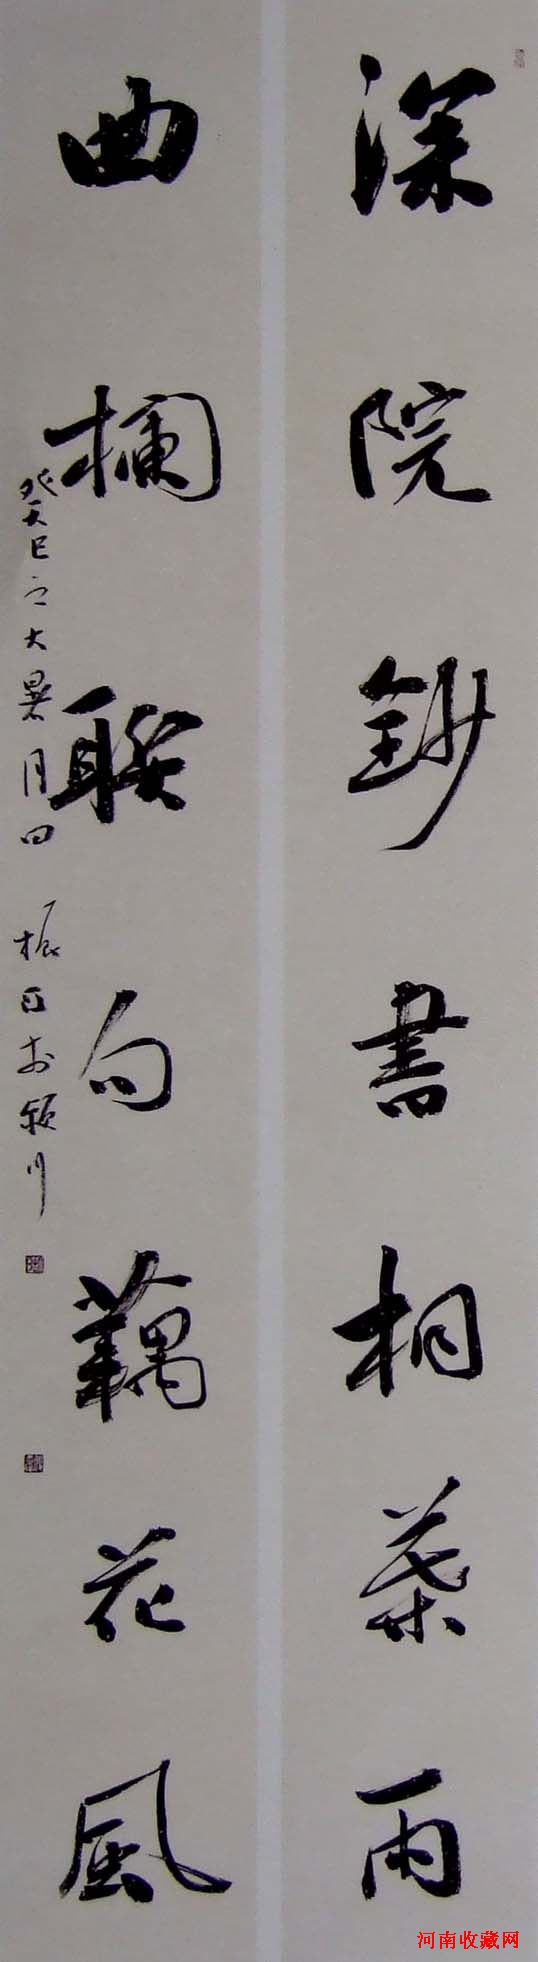 深院鈔書桐葉雨
曲欄聯句藕花風
癸巳之大暑月曰
振
於潁川
河南收藏网